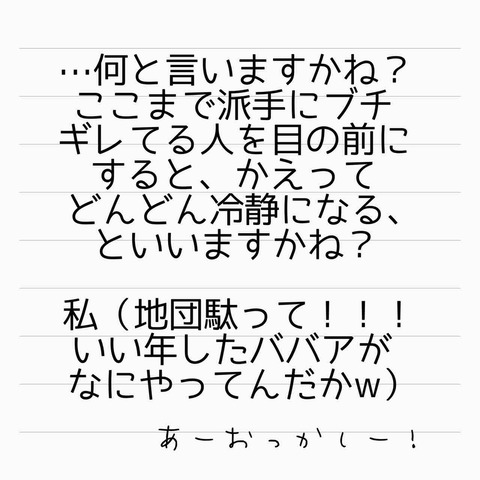 …何と言いますかね？
ここまで派手にブチ
ギレてる人を目の前に
すると、かえって
どんどん冷静になる、
といいますかね？
私（地団駄って！！！
いい年したババアが
なにやってんだかw）
あーおっかしー！